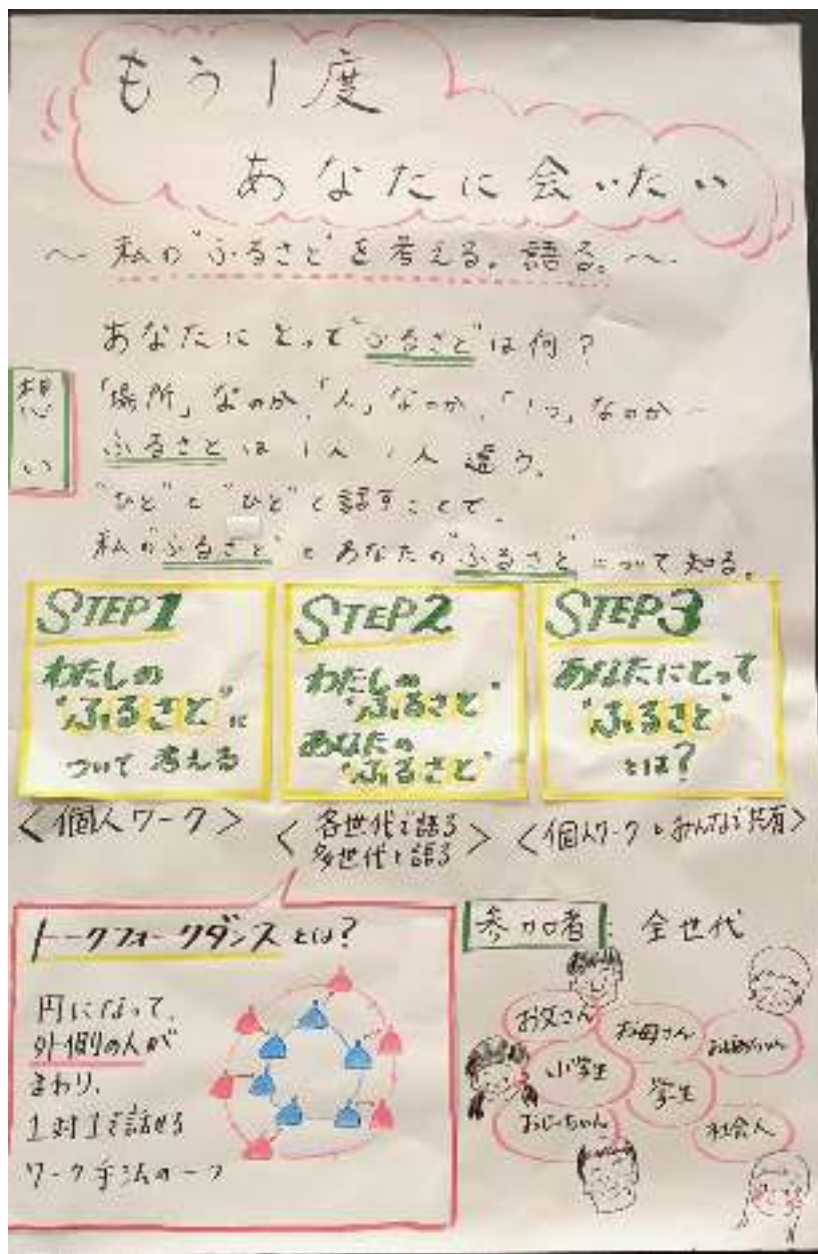 もう1度
あなたに会いたい
〜私の"ふるさと"を考える。語る。〜
想い
あなたにとって"ふるさと"は何?
「場所」なのか、「人」なのか、「いつ」なのか〜
ふるさとは1人1人違う。
"ひと"と"ひと"と話すことで、
私の"ふるさと"とあなたの"ふるさと"について知る。
STEP1
わたしの
"ふるさと"に
ついて考える
<個人ワーク>
STEP2
わたしの
"ふるさと"
あなたの
"ふるさと"
<各世代で語る
多世代で語る>
STEP3
あなたにとって
"ふるさと"
とは?
<個人ワーク→みんなで共有>
トークフォークダンスとは?
円になって、
外側の人が
まわり、
1対1で話せる
ワーク手法の一つ
参加者:全世代
お父さん
お母さん
おばあちゃん
小学生
学生
おじーちゃん
社会人